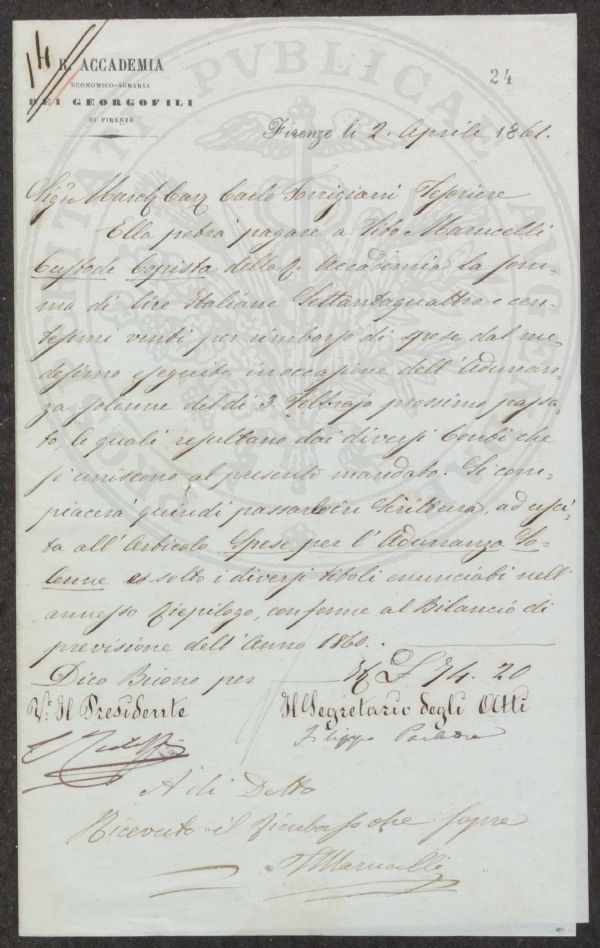 14
R. ACCADEMIA
ECONOMICO-AGRARIA
DEI GEORGOFILI
DI FIRENZE
24
Firenze li 2. Aprile 1861.
Sigr. March. Cav. Carlo Torrigiani Tesoriere
Ella potrà pagare a Tito Marucelli
Custode Copista della R. Accademia la som-
ma di lire Italiane Settantaquattro e cen-
tesimi venti per rimborso di spese dal me-
desimo eseguite in occasione dell'Adunan-
za solenne del dì 3. Febbrajo prossimo passa-
to, le quali resultano dai diversi Conti che
si uniscono al presente mandato. Si com-
piacerà quindi passarlo in Scrittura, ad usci-
ta all'Articolo Spese per l'Adunanza So-
lenne e sotto i diversi titoli enunciati nell'
annesso Riepilogo, conforme al Bilancio di
previsione dell'Anno 1860.
Dico Buono per £ 74. 20
Vo. Il Presidente
Il Segretario degli Atti
Filippo
A dì Detto
Ricevuto il rimborso che sopra
T Marucelli
PVBLICAE